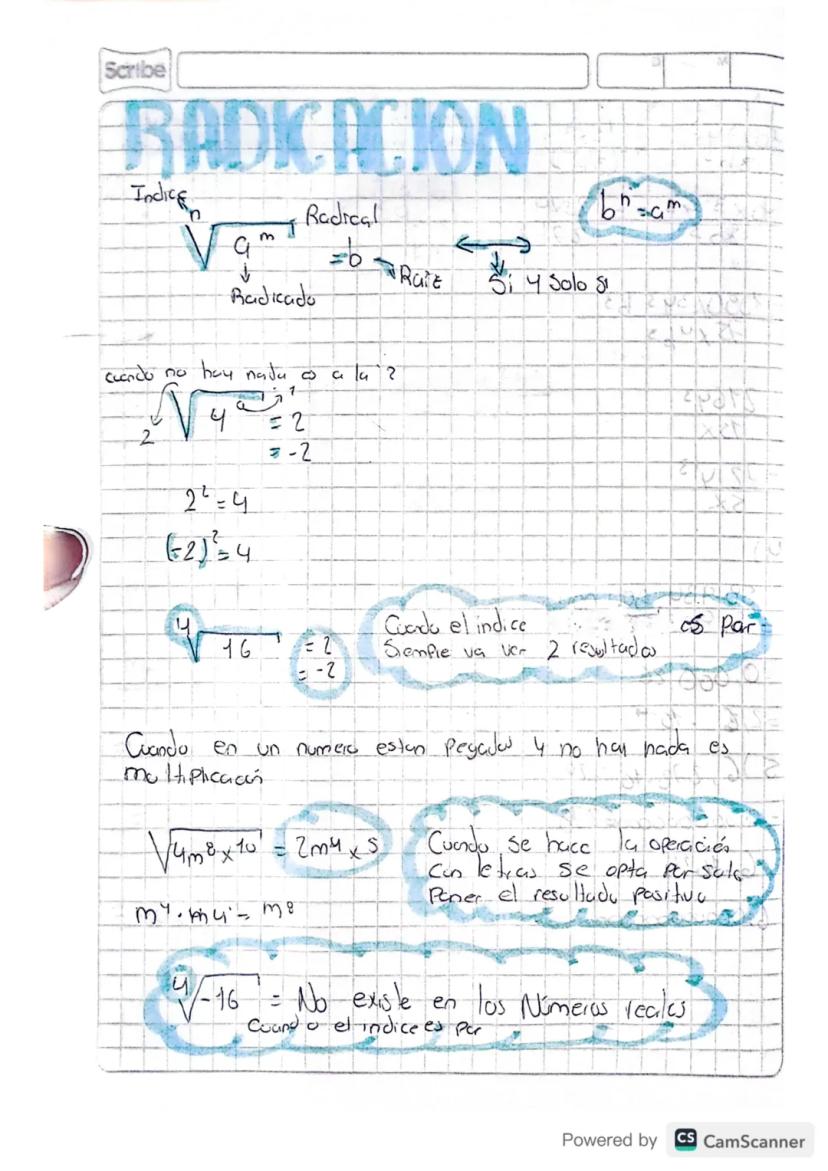 Scribe
RADICACION
Indice
n
√a^m
Radical
=b
Raiz
Radicado
Si y Solo si
b^n = a^m
cuando no hay nada es a la 2
2 √4 ^1
= 2
= -2
2² = 4
(-2)² = 4
⁴√16 = 2
= -2
Cuando el indice es Par
Siempre va ver 2 resultados
Cuando en un numero estan pegados y no hay nada es
multiplicación
√4m⁸x¹⁰ = 2m⁴x⁵
m⁴·m⁴ = m⁸
Cuando se hace la operación
con letras se opta por solo
Poner el resultado Positivo
⁴√-16 = No existe en los Números reales
Cuando el indice es par
Powered by CS CamScanner